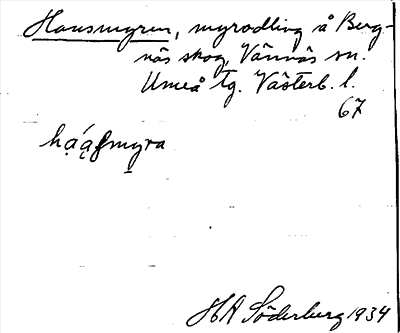 Hansmyren, myrodling å Berg-
näs skog, Vännäs sn.
Umeå tg. Västerb. l.
67
HA Söderberg 1934